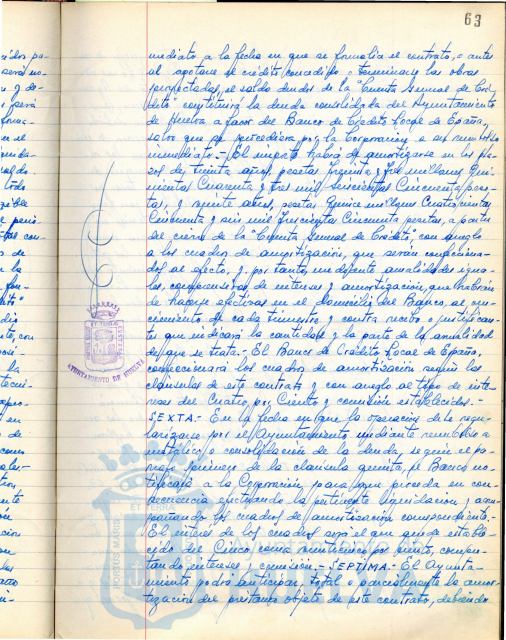 63
mediato a la fecha en que se formalice el contrato, o antes
al agotarse el crédito concedido o terminarse las obras
proyectadas, el saldo deudor de la "Cuenta General de Cré-
dito" constituirá la deuda consolidada del Ayuntamiento
de Huelva a favor del Banco de Crédito Local de España,
salvo que se procediera por la Corporación a su reembolso
inmediato.- El importe habrá de amortizarse en los pla-
zos de treinta años, pesetas Treinta y millones Qui-
nientas Cuarenta y tres mil Seiscientas Cincuenta pese-
tas, y veinte años, pesetas Quince millones Cuatrocientas
Cincuenta y seis mil Trescientas Cincuenta pesetas, a partir
del cierre de la "Cuenta General de Crédito", con arreglo
a los cuadros de amortización, que serán confecciona-
dos al efecto, y, por tanto, mediante anualidades igua-
les, comprensivas de intereses y amortización, que habrán
de hacerse efectivas en el domicilio del Banco, al ven-
cimiento de cada trimestre y contra recibo o justifican-
tes que indicará la cantidad y la parte de la anualidad
de que se trata.- El Banco de Crédito Local de España,
confeccionará los cuadros de amortización según las
cláusulas de este contrato y con arreglo al tipo de inte-
rés del Cuatro por Ciento y comisión establecidos.-
SEXTA.- En la fecha en que la operación debe regu-
larizarse por el Ayuntamiento mediante reembolso a
metálico o consolidación de la deuda, según el pá-
rrafo primero de la cláusula quinta, el Banco no-
tificará a la Corporación para que proceda en con-
secuencia efectuando la pertinente liquidación y acom-
pañando los cuadros de amortización correspondiente.-
El interés de los cuadros será el que quede estable-
cido del Cinco, coma veinticinco por ciento, compu-
tando intereses y comisión.- SEPTIMA.- El Ayunta-
miento podrá anticipar, total o parcialmente la amor-
tización del préstamo objeto de este contrato, debiendo
AYUNTAMIENTO DE HUELVA